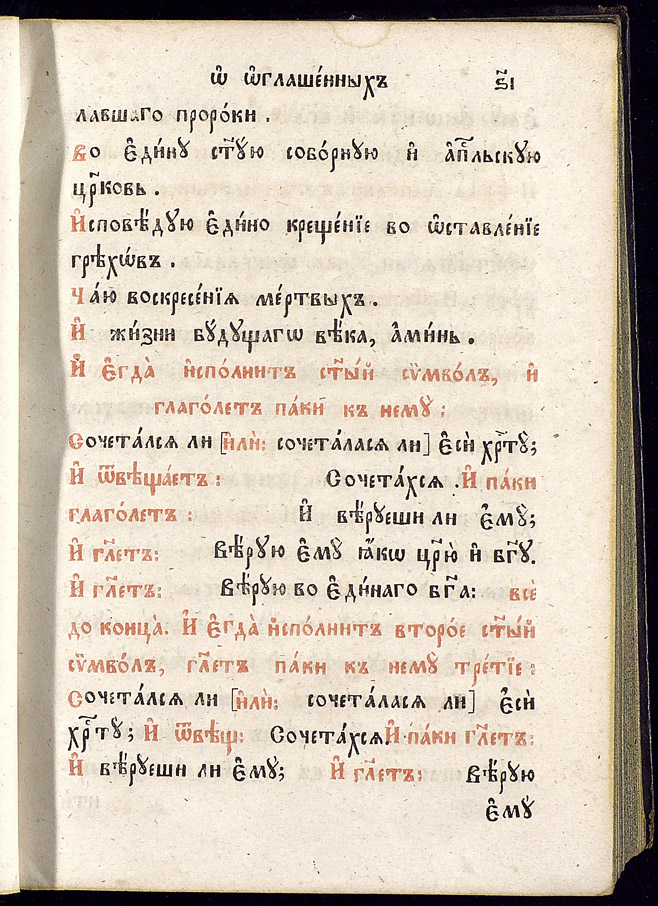 Ѽ ѡ҆глаше́нныхъ ѕ҃і
лавшаго проро́ки .
Во є҆ди́нꙋ ст҃ꙋю собо́рнꙋю и҆ а҆пⷭ҇льскꙋю
цр҃ковь .
И҆сповѣ́дꙋю є҆ди́но креще́нїе во ѡ҆ставле́нїе
грѣхѡ́въ .
Ча́ю воскресе́нїѧ ме́ртвыхъ .
И҆ жи́зни бꙋ́дꙋщагѡ вѣ́ка, а҆ми́нь .
И҆ є҆гда̀ и҆спо́лнитъ ст҃ы́й сѷмво́лъ, и҆
глаго́летъ па́ки къ немꙋ̀ :
Сочета́лсѧ ли [и҆лѝ: сочета́ласѧ ли] є҆сѝ хрⷭ҇тꙋ̀;
И҆ ѿвѣща́етъ : Сочета́хсѧ . И҆ па́ки
глаго́летъ : И҆ вѣ́рꙋеши ли є҆мꙋ̀;
И҆ гл҃етъ: Вѣ́рꙋю є҆мꙋ̀ ꙗ҆́кѡ цр҃ю̀ и҆ бг҃ꙋ.
И҆ гл҃етъ: Вѣ́рꙋю во є҆ди́наго бг҃а: всѐ
до конца̀. И҆ є҆гда̀ и҆спо́лнитъ второ́е ст҃ы́й
сѷмво́лъ, гл҃етъ па́ки къ немꙋ̀ тре́тїе :
Сочета́лсѧ ли [и҆лѝ: сочета́ласѧ ли] є҆сѝ
хрⷭ҇тꙋ̀; И҆ ѿвѣщ: Сочета́хсѧ. И҆ па́ки гл҃етъ:
И҆ вѣ́рꙋеши ли є҆мꙋ̀; И҆ гл҃етъ: Вѣ́рꙋю
є҆мꙋ̀